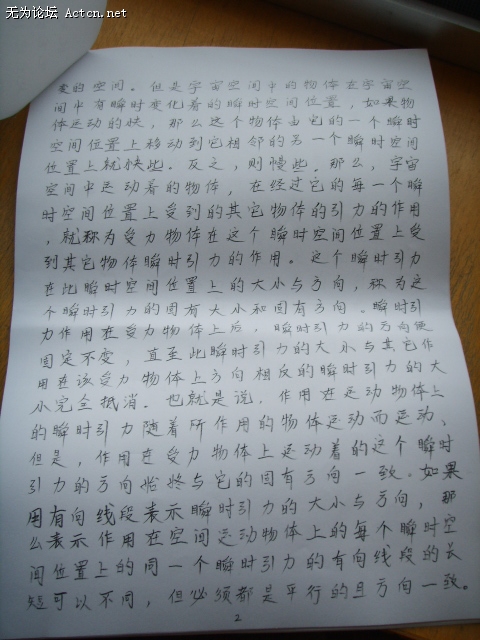 无为论坛 Actcn.net
变的空间。但是宇宙空间中的物体在宇宙空
间中有瞬时变化着的瞬时空间位置，如果物
体运动的快，那么这个物体由它的一个瞬时
空间位置上移动到它相邻的另一个瞬时空间
位置上就快些。反之，则慢些。那么，宇宙
空间中运动着的物体，在经过它的每一个瞬
时空间位置上受到的其它物体的引力的作用
，就称为受力物体在这个瞬时空间位置上受
到其它物体瞬时引力的作用。这个瞬时引力
在此瞬时空间位置上的大小与方向，称为这
个瞬时引力的固有大小和固有方向。瞬时引
力作用在受力物体上后，瞬时引力的方向便
固定不变，直至此瞬时引力的大小与其它作
用在该受力物体上方向相反的瞬时引力的大
小完全抵消。也就是说，作用在运动物体上
的瞬时引力随着所作用的物体运动而运动、
但是，作用在受力物体上运动着的这个瞬时
引力的方向始终与它的固有方向一致。如果
用有向线段表示瞬时引力的大小与方向，那
么表示作用在空间运动物体上的每个瞬时空
间位置上的同一个瞬时引力的有向线段的长
短可以不同，但必须都是平行的且方向一致。
2